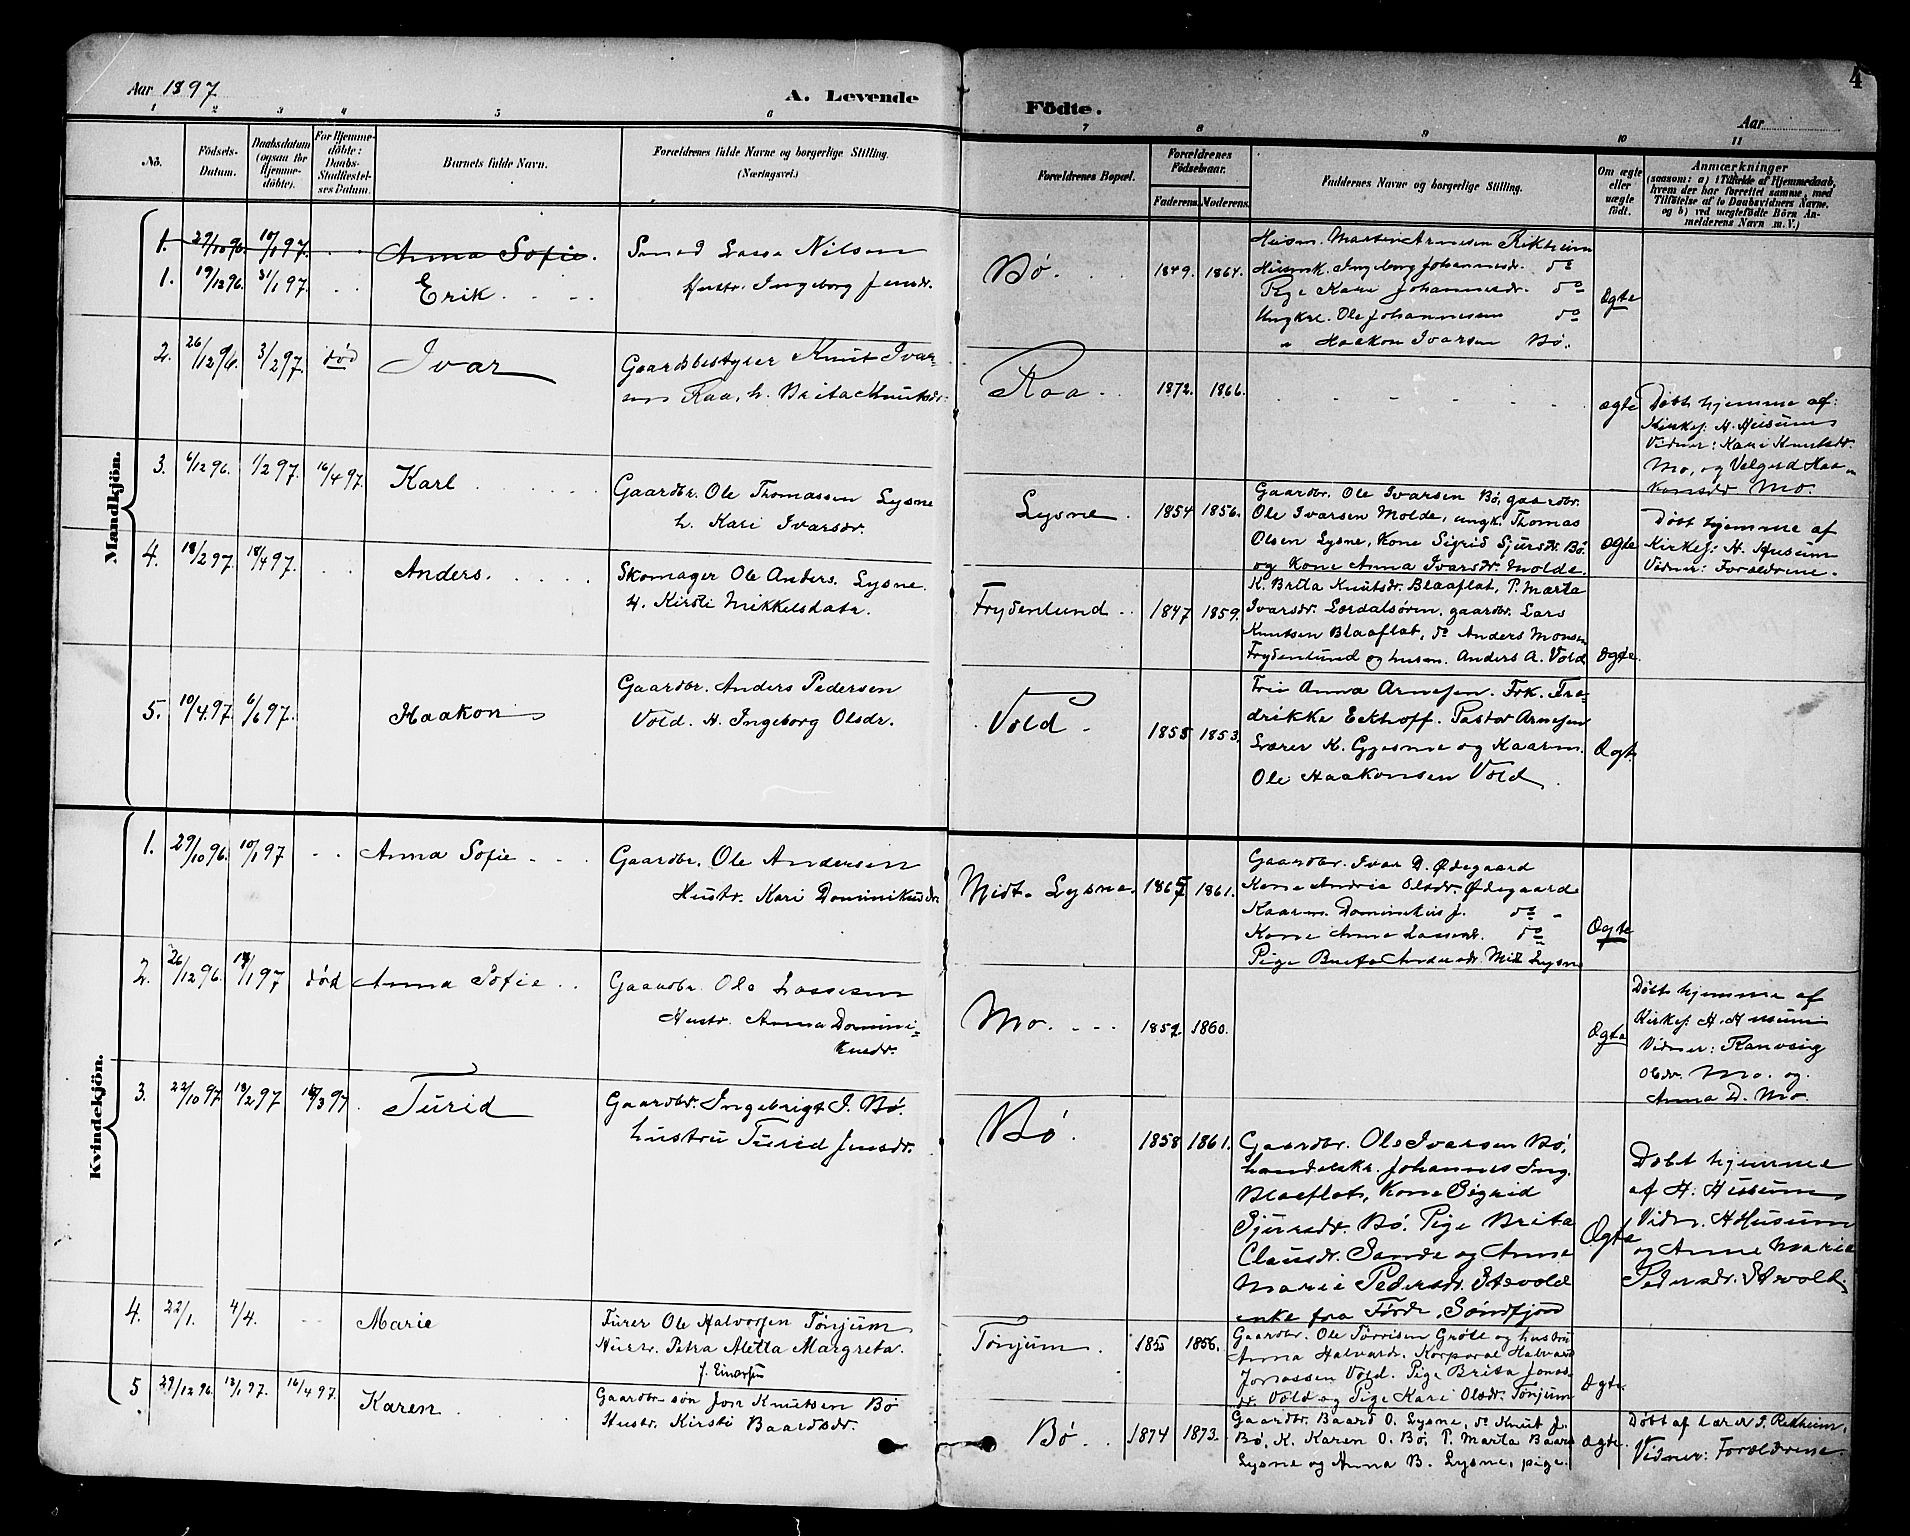 Aar 1897
A. Levende
Födte.
Aar
4
1 2 3 4 5 6 7 8 9 10 11
No.
Födsels-
Datum.
Daabsdatum
(ogsaa for
Hjemme-
döbte).
For Hjemme-
döbte:
Daabs-
Stadfæstel-
ses Datum.
Barnets fulde Navn.
Forældrenes fulde Navne og borgerlige Stilling.
(Næringsvei.)
Forældrenes Bopæl.
Forældrenes
Födselsaar.
Faderens. Moderens.
Faddernes Navne og borgerlige Stilling.
Om ægte
eller
uægte
födt.
Anmærkninger
(saasom: a) i Tilfælde af Hjemmedaab,
hvem der har forrettet samme, med
Tilföielse af to Daabsvidners Navne.
og b) ved uægtefödte Börn An-
melderens Navn m. V.)
Mandkjön.
1. 29/10 96. 10/1 97. Anna Sofie.
1. 19/12 96. 31/1 97. Erik
Smed Lasse Nilsen
Hustr. Ingeborg Jensdr.
Bö. 1849. 1864.
Husm. Martin Arnesen Rikheim
Husmk. Ingeborg Johannesdr. do
Pige Kari Johannesdr. do
Ungkrl. Ole Johannesen do
" Haakon Ivarsen Bö.
Ægte
2. 26/12 96. 3/2 97. död Ivar
Gaardsbestyrer Knut Ivar-
sen Raa, h. Brita Knutsdr.
Raa. 1872. 1866.
ægte
Döbt hjemme af:
Kirkes. H. Husum
Vidner: Kari Knutsdr.
Mo, og Valgerd Haa-
konsdr Mo.
3. 6/12 96. 1/2 97. 16/4 97. Karl
Gaardbr. Ole Thomassen Lysne
h. Kari Ivarsdr.
Lysne. 1854 1856.
Gaardbr. Ole Ivarsen Bö, gaardbr.
Ole Ivarsen Molde, ungk. Thomas
Olsen Lysne, Kone Sigrid Sjursdr. Bö
og Kone Anna Ivarsdr. Molde.
Ægte
Döbt hjemme af
Kirkes: H. Husum
Vidner: Forældrene.
4. 18/2 97. 18/4 97. Anders.
Skomager Ole Anders. Lysne.
H. Kirsti Mikkelsdatr.
Frydenlund 1847 1859.
K. Brita Knutsdr. Blaaflat, P. Marta
Ivarsdr. Lærdalsören, gaardbr. Lars
Knutsen Blaaflat, do Anders Monsen
Frydenlund og husm. Anders A. Vold
Ægte.
5. 10/4. 97. 6/6 97. Haakon
Gaardbr. Anders Pedersen
Vold. H. Ingeborg Olsdr.
Vold. 1855 1853.
Frue Anna Arnesen. Frk. Fre-
drikke Eckhoff. Pastor Arnesen
Lærer K. Gjesme og Kaarm.
Ole Haakonsen Vold.
Ægt.
Kvindekjön.
1. 29/10 96. 10/1 97 Anna Sofie
Gaardbr. Ole Andersen
Hustr. Kari Dominikusdr.
Midt-Lysne. 1867 1861.
Gaardbr. Ivar D. Ødegaard
Kone Andrea Olsdr. Ødegaard
Kaarm. Dominikus J. do
Kone Anna Lassedr. do
Pige Brita Andersdr. Midt Lysne
Ægte
2. 26/12 96. 18/1 97 död Anna Sofie
Gaardbr. Ole Lassesen
Hustr. Anna Domini-
kusdr.
Mo. 1852 1860.
Ægte
Döbt hjemme af
Kirkes. H. Husum
Vidner: Ranveig
Olsdr. Mo. og
Anna D. Mo.
3. 22/10 97 18/2 97 /3 97 Turid
Gaardbr. Ingebrigt J. Bö.
hustru Turid Jensdr.
Bö. 1858 1861.
Gaardbr. Ole Ivarsen Bö,
handelskr. Johannes Ing.
Blaaflat, Kone Sigrid
Sjursdr. Bö. Pige Brita
Clausdr. Sande og Anne
Marie Pedersdr. Stevold
enke fra Förde, Söndfjord
Ægte
Döbt hjemme
af H. Husum
Vidn. H Husum
og Anne Marie
Pedersdr. Stevold.
4. 22/1. 4/4. Marie
Furer Ole Halvorsen Tönjum
Hustr. Petra Aletta Margreta.
f. Einarsen
Tönjum. 1855 1856.
Gaardbr. Ole Törrisen Gröte og hustru
Anna Halvardr. Korporal Halvard
Jonassen Vold. Pige Brita Jonas-
dr. Vold og Pige Kari Olsdr. Tönjum
Ægte.
5 29/12 96. 12/1 97. 16/4 97. Karen
Gaardbr. sön Jon Knutsen Bö
Hustr. Kirsti Baardsdr.
Bö. 1874 1873.
Gaardbr. Baard O. Lysne, do Knut J.
Bö, K. Karen O. Bö, P. Marta Baards
Lysne og Anna B. Lysne, pige.
Ægte.
Döbt af lærer J. Rikheim.
Vidner: Forældrene.